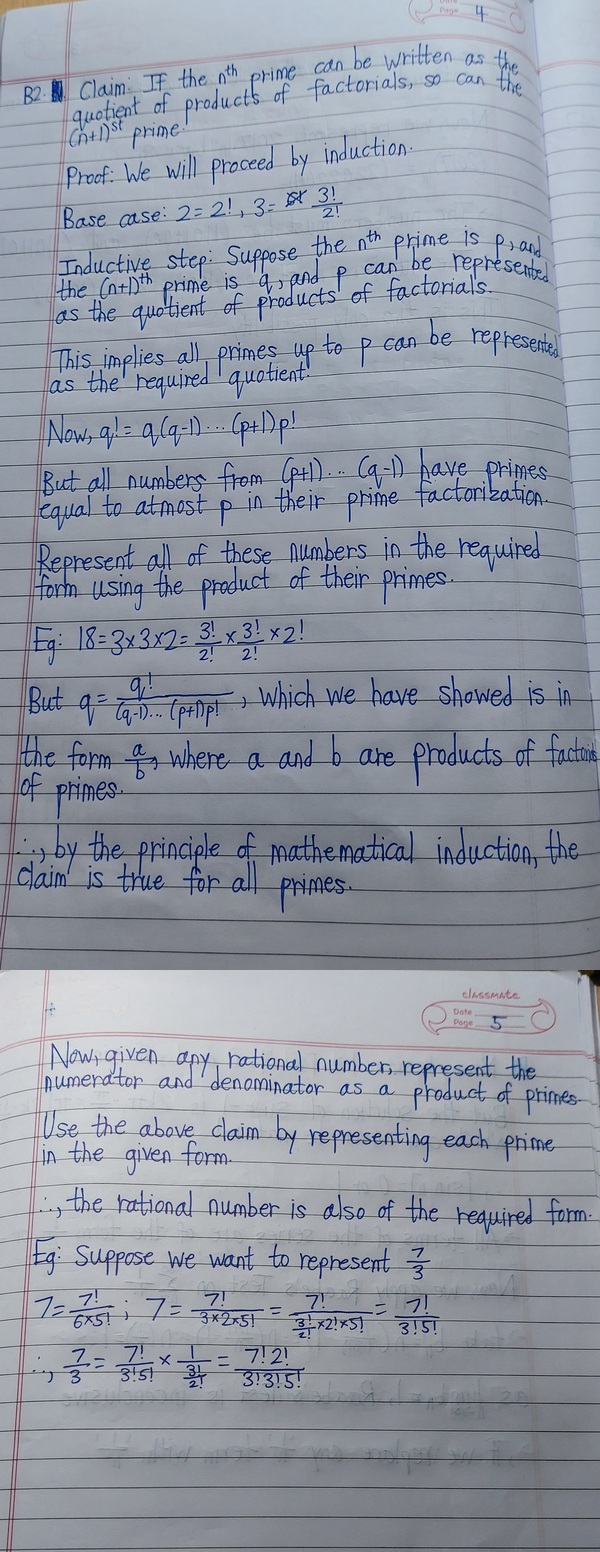 Date
Page 4
B2. Claim: If the nth prime can be written as the
quotient of products of factorials, so can the
(n+1)st prime.
Proof: We will proceed by induction.
Base case: 2 = 2!, 3 = 3!/2!
Inductive step: Suppose the nth prime is p, and
the (n+1)th prime is q, and p can be represented
as the quotient of products of factorials.
This implies all primes up to p can be represented
as the required quotient.
Now, q! = q(q-1)...(p+1)p!
But all numbers from (p+1)...(q-1) have primes
equal to atmost p in their prime factorization.
Represent all of these numbers in the required
form using the product of their primes.
Eg: 18 = 3×3×2 = 3!/2! × 3!/2! × 2!
But q = q!/((q-1)...(p+1)p!), which we have showed is in
the form a/b, where a and b are products of factorials
of primes.
∴, by the principle of mathematical induction, the
claim is true for all primes.
classmate
Date
Page 5
Now, given any rational number, represent the
numerator and denominator as a product of primes.
Use the above claim by representing each prime
in the given form.
∴, the rational number is also of the required form.
Eg: Suppose we want to represent 7/3
7 = 7!/(6×5!) ; 7 = 7!/(3×2×5!) = 7!/(3!/2! ×2!×5!) = 7!/(3!5!)
∴, 7/3 = 7!/(3!5!) × 1/(3!/2!) = 7!2!/(3!3!5!)